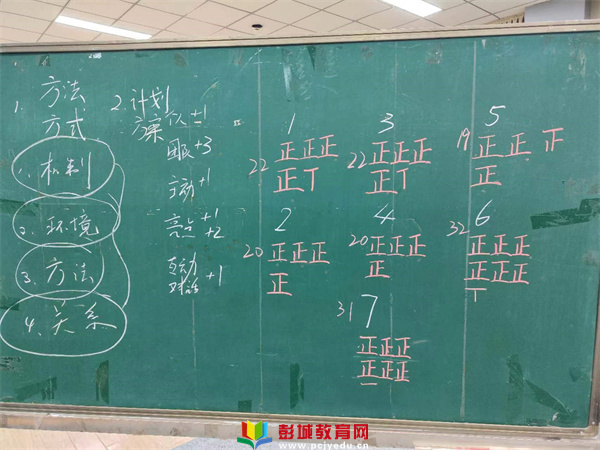 1. 方法
方式
1. 机制
2. 环境
3. 方法
4. 关系
2. 计划
方案
个人 ±1
团队 +3
主动 +1
亮点 +1
+2
互动
对话 +1
1
22 正正正
正丅
3
22 正正正
正丅
5
19 正正正
正
2
20 正正正
正
4
20 正正正
正
6
32 正正正
正正正
丅
7
31 正正正
正正正
一
彭城教育网
www.pcjyedu.com